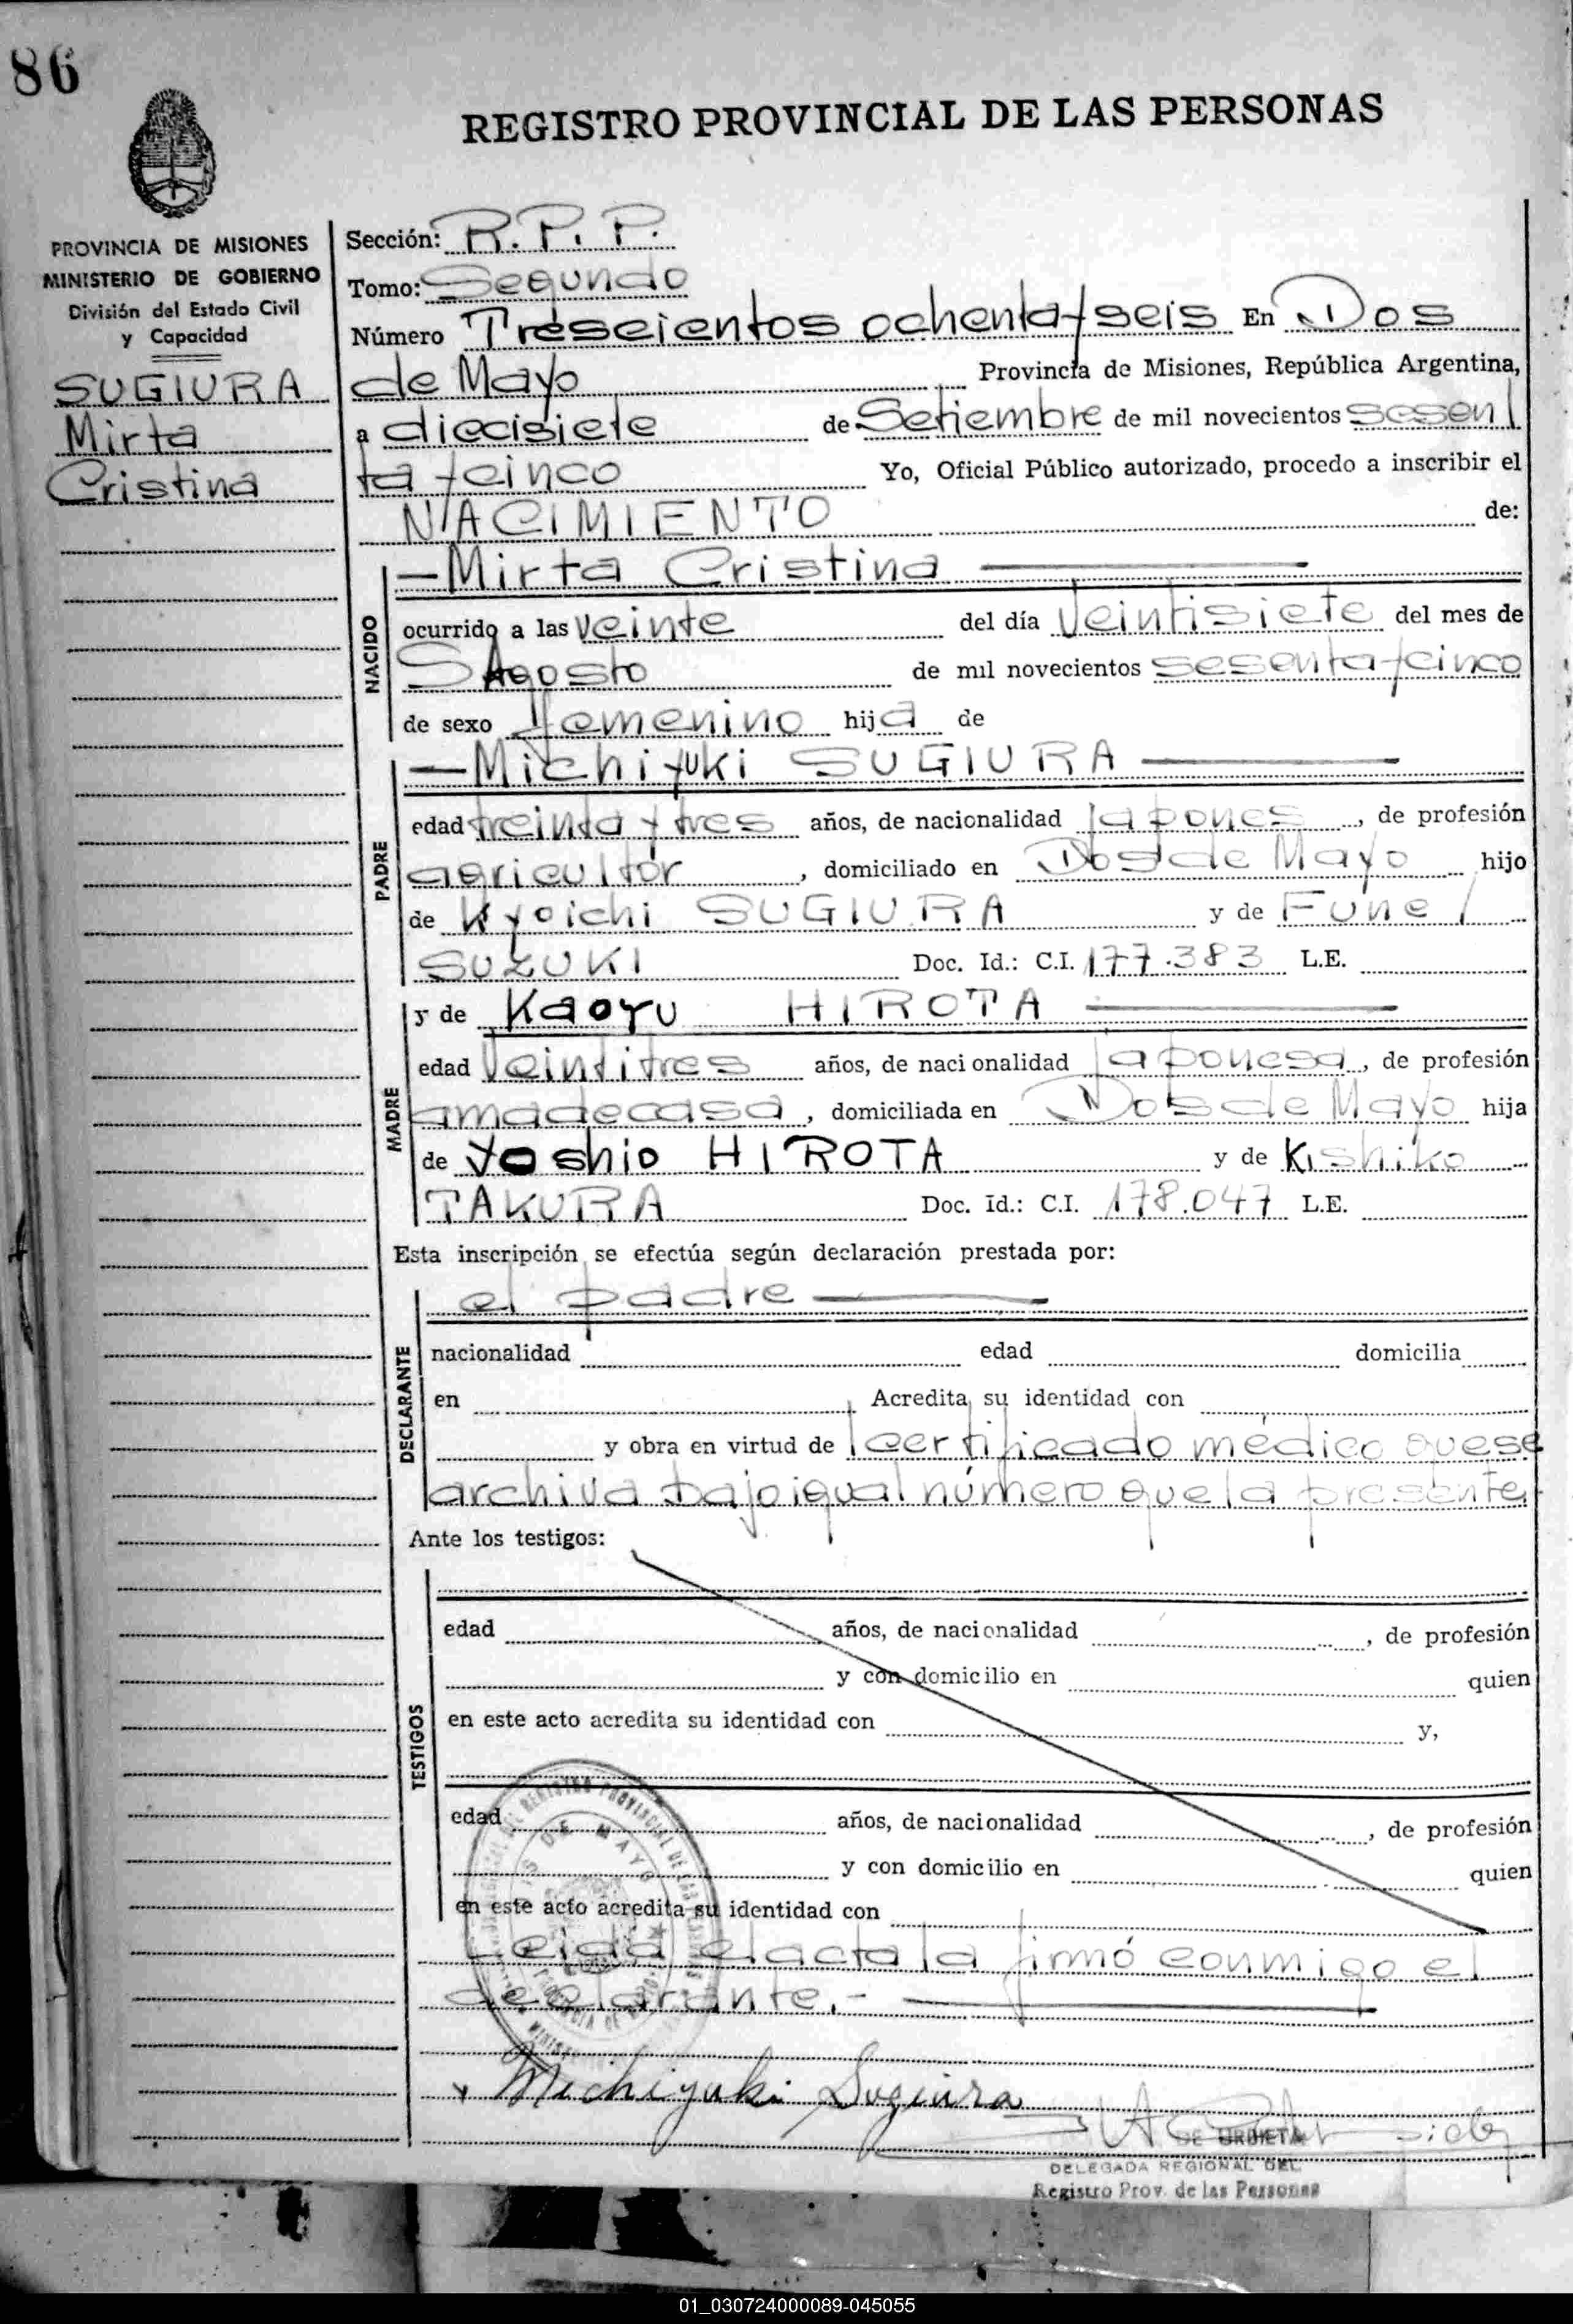 86
REGISTRO PROVINCIAL DE LAS PERSONAS
PROVINCIA DE MISIONES
MINISTERIO DE GOBIERNO
División del Estado Civil
y Capacidad
SUGIURA
Mirta
Cristina
Sección: R. P. P.
Tomo: Segundo
Número Trescientos ochenta y seis En Dos
de Mayo Provincia de Misiones, República Argentina,
a diecisiete de Setiembre de mil novecientos sesen
ta y cinco Yo, Oficial Público autorizado, procedo a inscribir el
NACIMIENTO de:
NACIDO
—Mirta Cristina—
ocurrido a las veinte del día veintisiete del mes de
Agosto de mil novecientos sesenta y cinco
de sexo femenino hija de
PADRE
—Michiyuki SUGIURA—
edad treinta y tres años, de nacionalidad japones, de profesión
agricultor, domiciliado en Dos de Mayo hijo
de Kyoichi SUGIURA y de Fune
SUZUKI Doc. Id.: C.I. 177.383 L.E.
MADRE
y de Kaoru HIROTA—
edad veintitres años, de nacionalidad japonesa, de profesión
ama de casa, domiciliada en Dos de Mayo hija
de Yoshio HIROTA y de Kishiko
TAKURA Doc. Id.: C.I. 178.047 L.E.
Esta inscripción se efectúa según declaración prestada por:
DECLARANTE
el padre—
nacionalidad edad domicilia
en Acredita su identidad con
y obra en virtud de certificado médico que se
archiva bajo igual número que la presente
Ante los testigos:
TESTIGOS
edad años, de nacionalidad , de profesión
y con domicilio en quien
en este acto acredita su identidad con y,
edad años, de nacionalidad , de profesión
y con domicilio en quien
en este acto acredita su identidad con
Leida el acta la firmó conmigo el
declarante.-—
Michiyuki Sugiura
DE URDIETA
DELEGADA REGIONAL DEL
Registro Prov. de las Personas
01_030724000089-045055